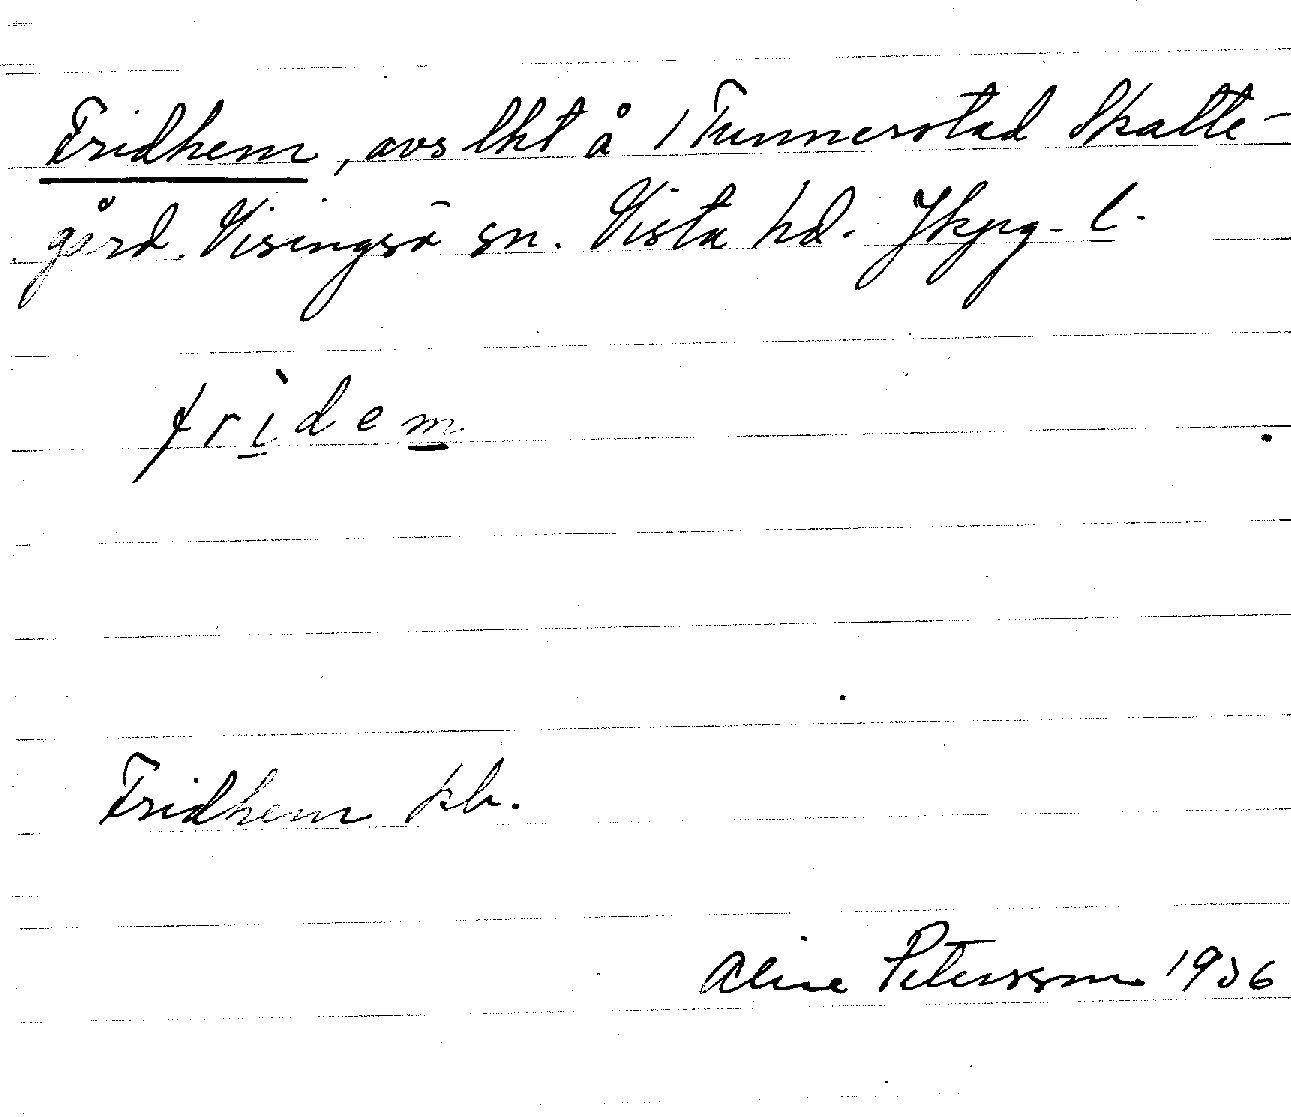 Fridhem, avs lht å 1 Tunnerstad Skatte-
gård. Visingsö sn. Vista hd. Jkpg. l.
fridem
Fridhem kb.
Aline Petersson 1936